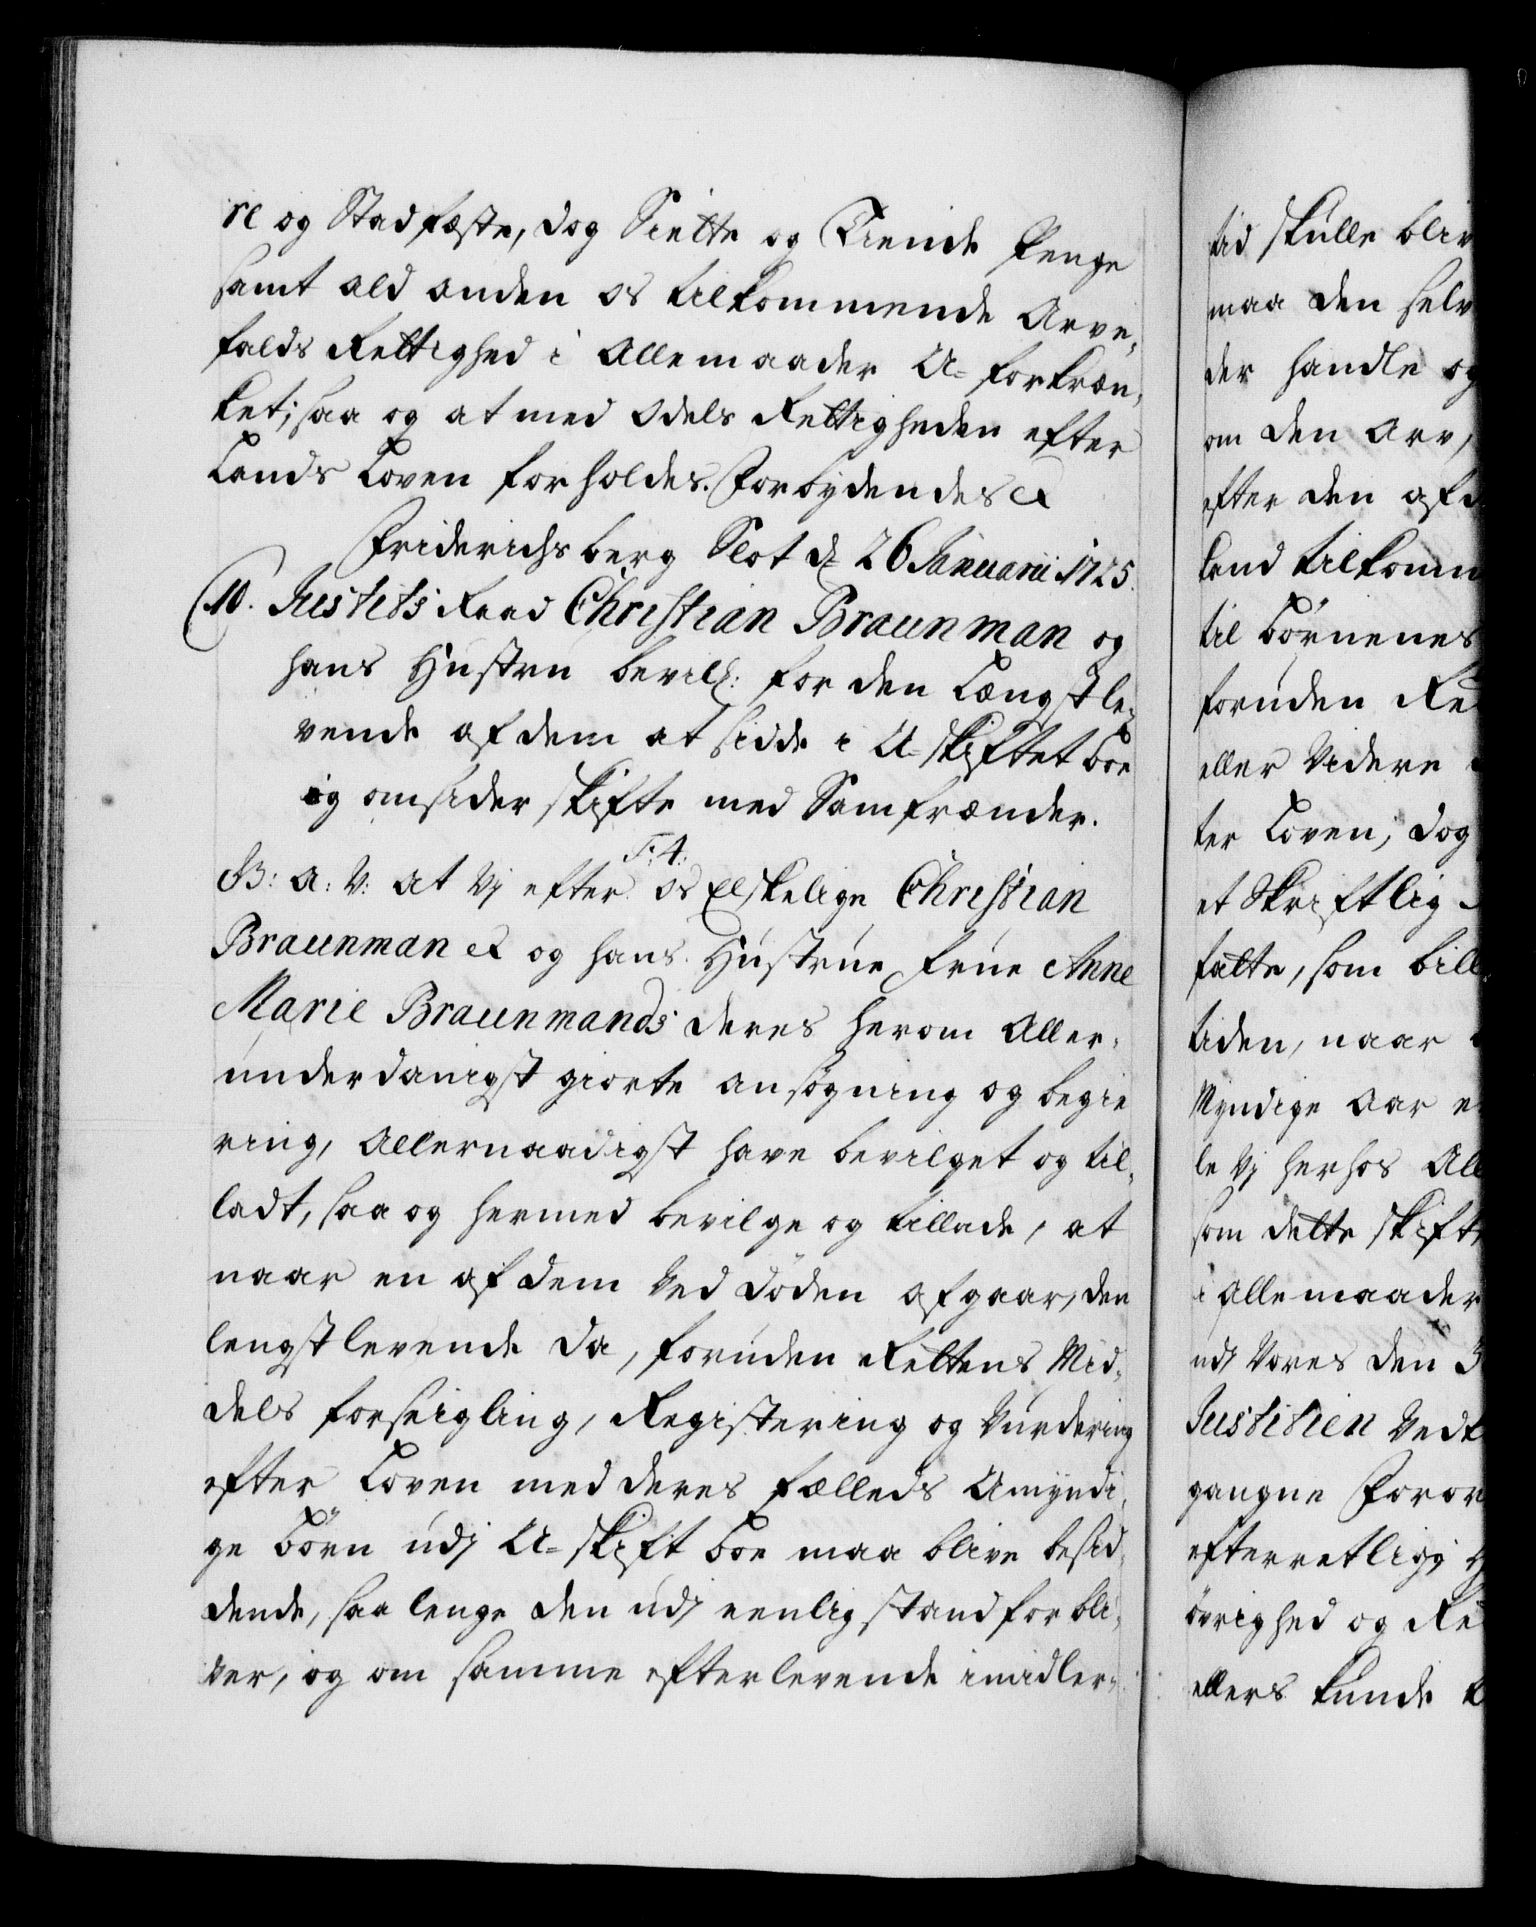 re og Stadfæste, dog Siette og Tiende Penge
samt ald anden os tilkommende Arve,
falds Rettighed i Allemaader U-forkræn,
ket; saa og at med Odels Rettigheden efter
Lands Loven forholdes. Forbydendes &
Friderichsberg Slot d. 26 Januarii 1725.
10. Justits Raad Christian Braunman og
hans Hustru bevilg: for den Længstle,
vende af dem at sidde i U-skiftet boe
og omsider skifte med Samfrænder.
F: 4:
G: A: V: At Vj efter os Elskelige Christian
Braunman & og hans Hustrue Frue Anne
Marie Braunmands deres herom Aller,
underdanigst giorte ansøgning og begie
ring, Allernaadigst have bevilget og til,
ladt, saa og hermed bevilge og tillade, at
naar en af dem Ved döden afgaar, den
lengstlevende da, foruden Rettens Mid,
dels forseigling, Registering og Vurdering
efter Loven med deres fælleds Umyndi,
ge Börn udj U-skift boe maa blive besid,
dende, saa lenge den udj eenlig stand forbli,
ver, og om samme efterlevende imidler,
tid skulle bliv
maa den selv
der handle og
om den Arv,
efter den afd
kand tilkomm
til Börnenes
foruden Re
eller Videre
ter Loven; dog
et Skriftlig
fatte, som bill
tiden, naar
Myndige Aar e
le Vj herhos All
som dette skift
i Allemaader
udj Vores den 3
Justitien Vedk
gangne Foror
efterretlig
övrighed og Re
ellers kunde